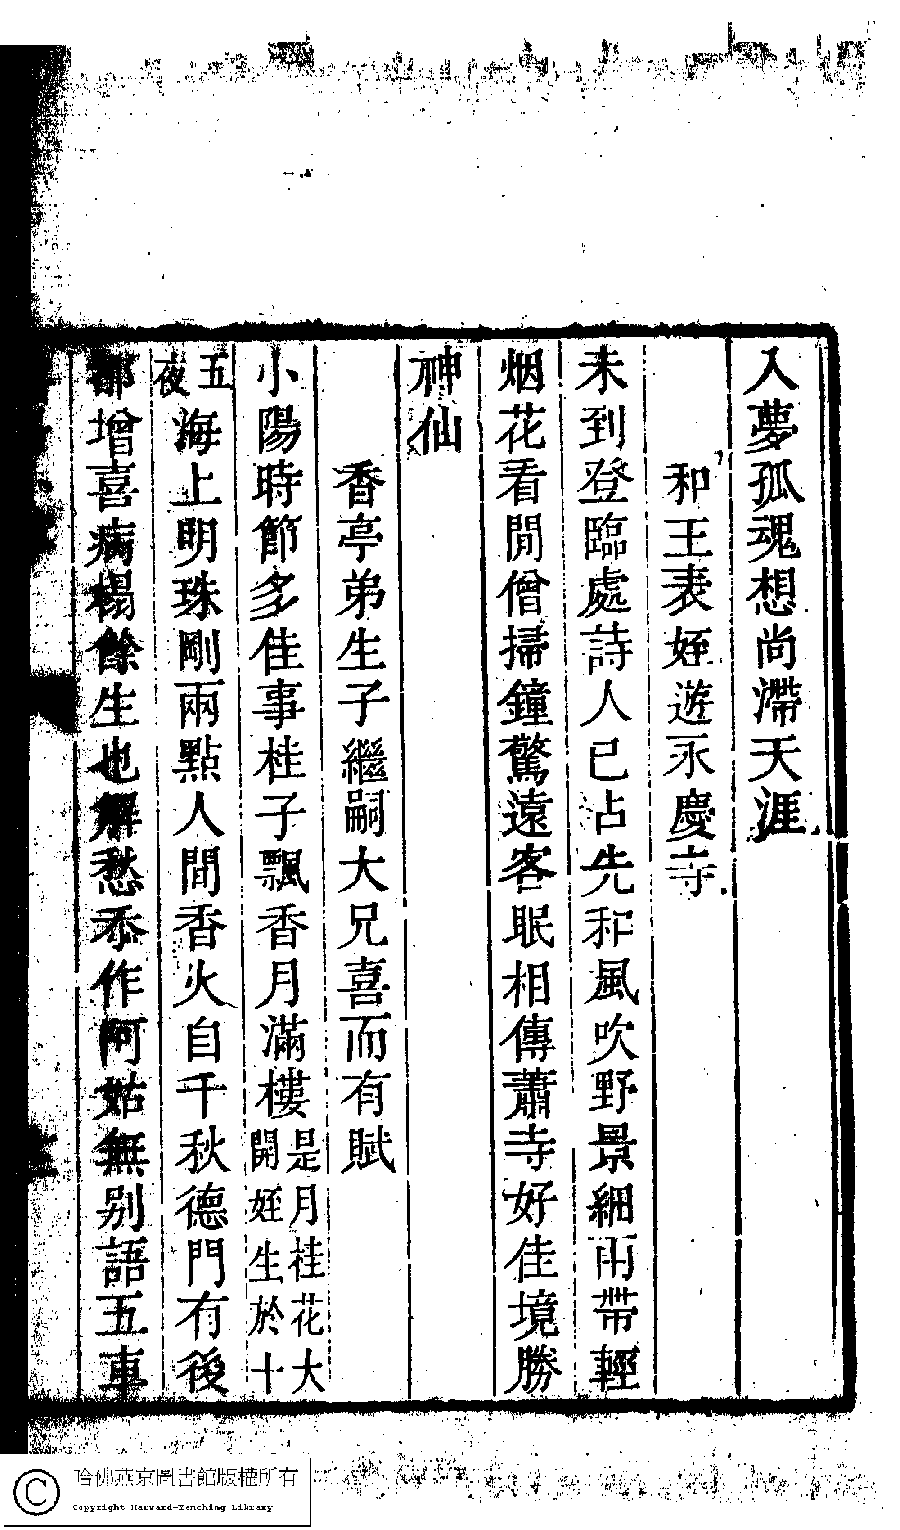 入夢孤魂想尚滯天涯
和王表姪遊永慶寺
未到登臨處詩人已占先和風吹野景細雨帶輕
烟花看閒僧掃鐘驚遠客眠相傳蕭寺好佳境勝
神仙
香亭弟生子繼嗣大兄喜而有賦
小陽時節多佳事桂子飄香月滿樓是月桂花大開姪生於十
五夜海上明珠剛兩點人間香火自千秋德門有後
都增喜病榻餘生也解愁忝作阿姑無别語五車
哈佛燕京圖書館版權所有
Copyright Harvard-Yenching Library